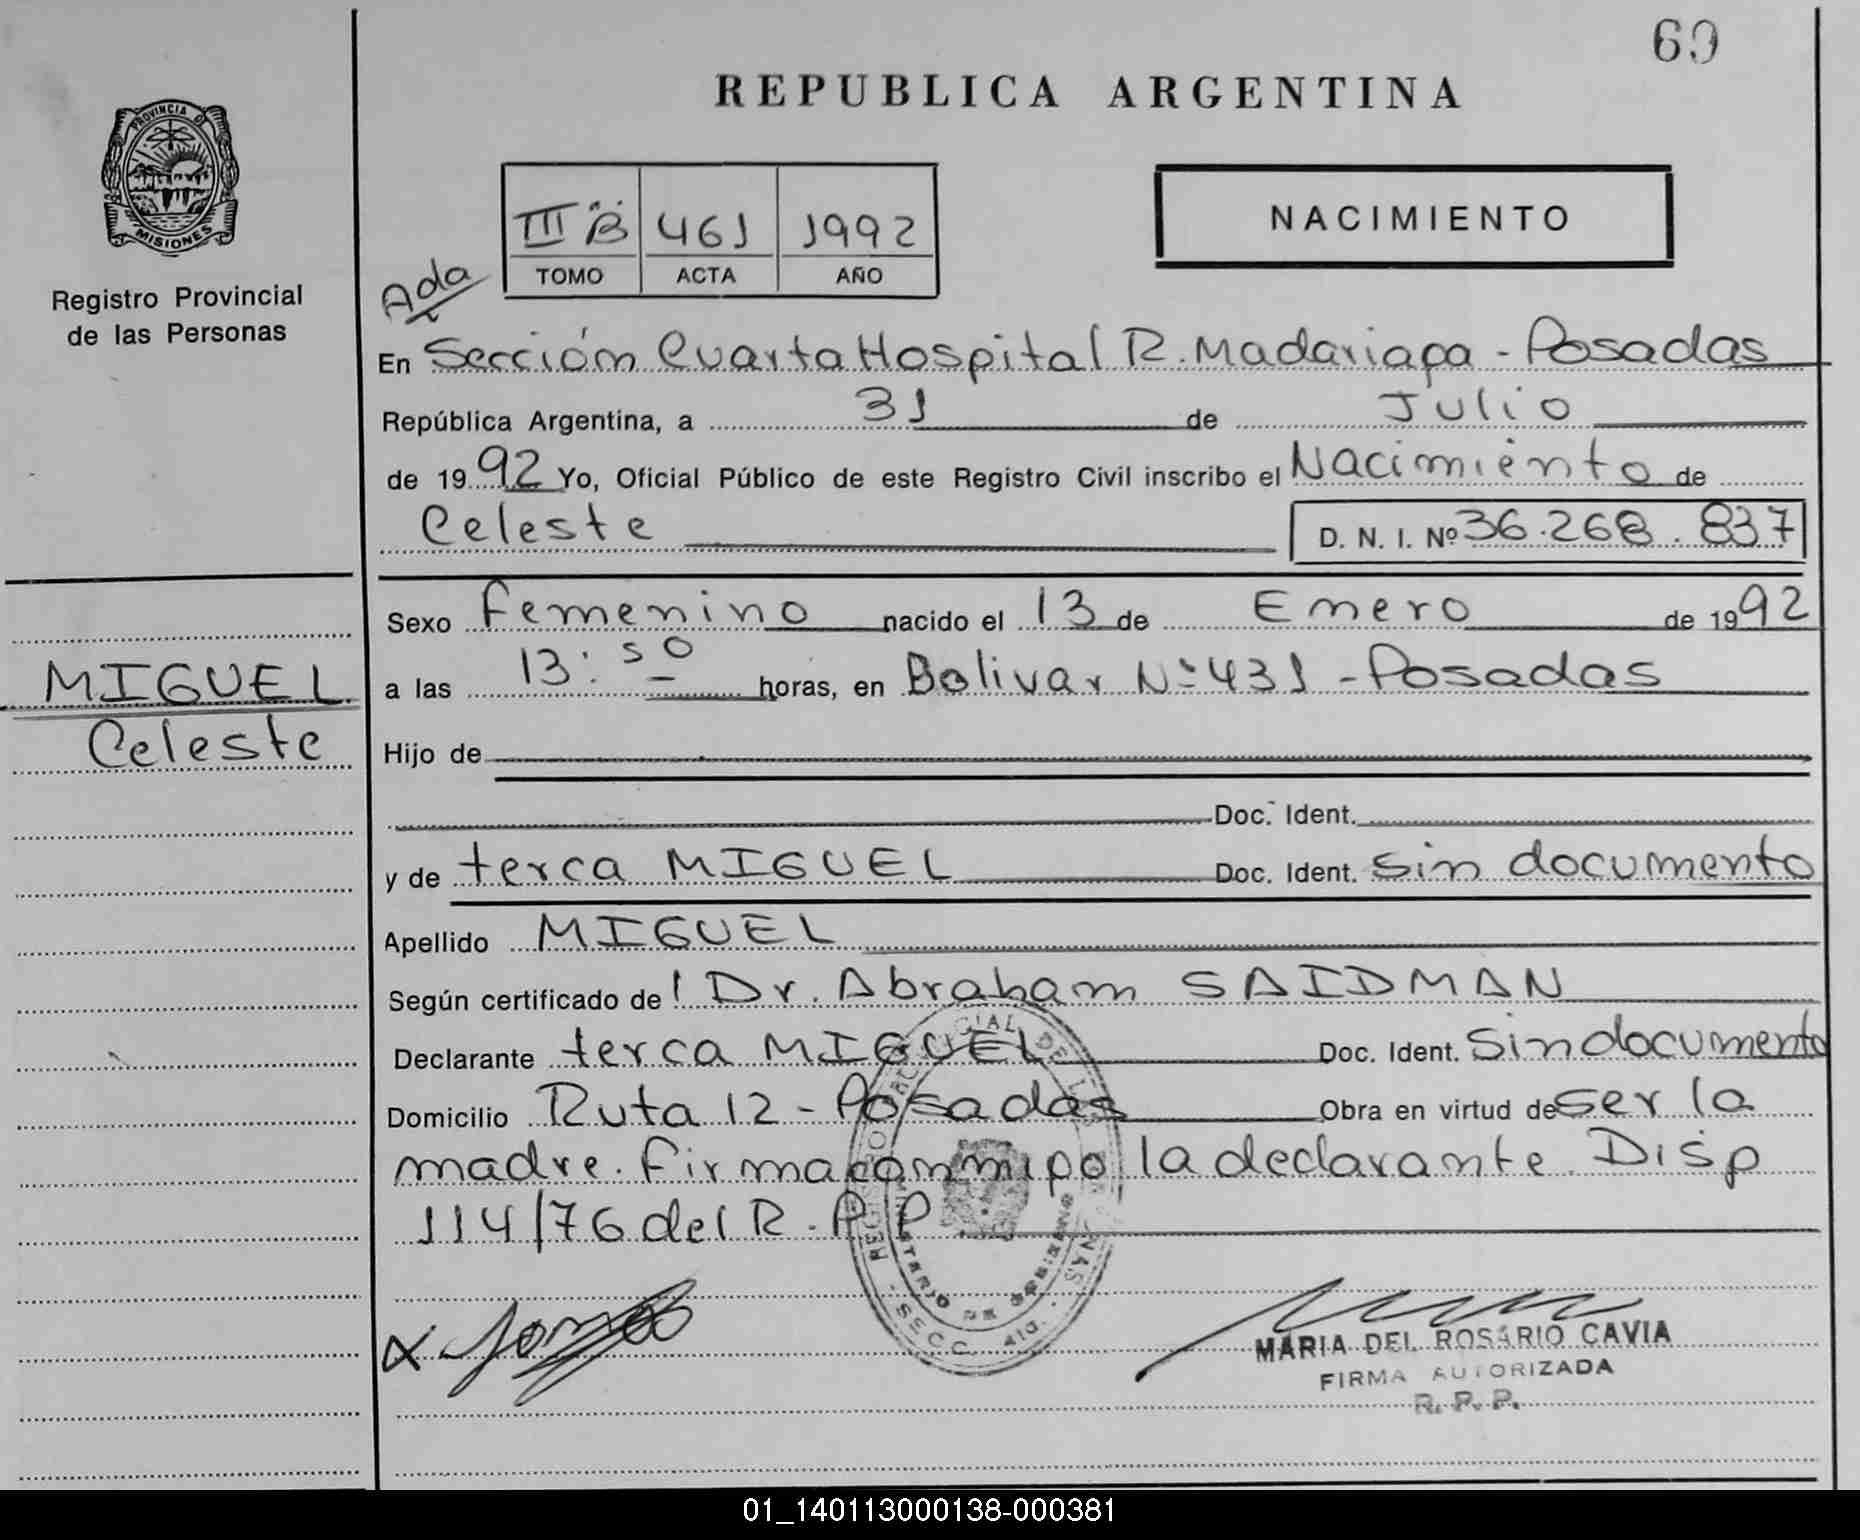 69
PROVINCIA D
MISIONES
Registro Provincial
de las Personas
REPUBLICA ARGENTINA
III B 461 1992
TOMO ACTA AÑO
NACIMIENTO
Ada
En Sección Cuarta Hospital R. Madariaga - Posadas
República Argentina, a 31 de Julio
de 1992 Yo, Oficial Público de este Registro Civil inscribo el Nacimiento de
Celeste D. N. I. Nº 36.268.837
Sexo femenino nacido el 13 de Enero de 1992
a las 13:50 horas, en Bolivar Nº 431 - Posadas
MIGUEL
Celeste
Hijo de
Doc. Ident.
y de terca MIGUEL Doc. Ident. sin documento
Apellido MIGUEL
Según certificado de l Dr. Abraham SAIDMAN
Declarante terca MIGUEL Doc. Ident. sin documento
Domicilio Ruta 12 - Posadas Obra en virtud de ser la
madre. firma conmigo la declarante. Disp
114/76 del R.P.P
REGISTRO PROVINCIAL DE LAS PERSONAS
MINISTERIO DE GOBIERNO
- SECC. 4ta. -
MARIA DEL ROSARIO CAVIA
FIRMA AUTORIZADA
R. P. P.
01_140113000138-000381